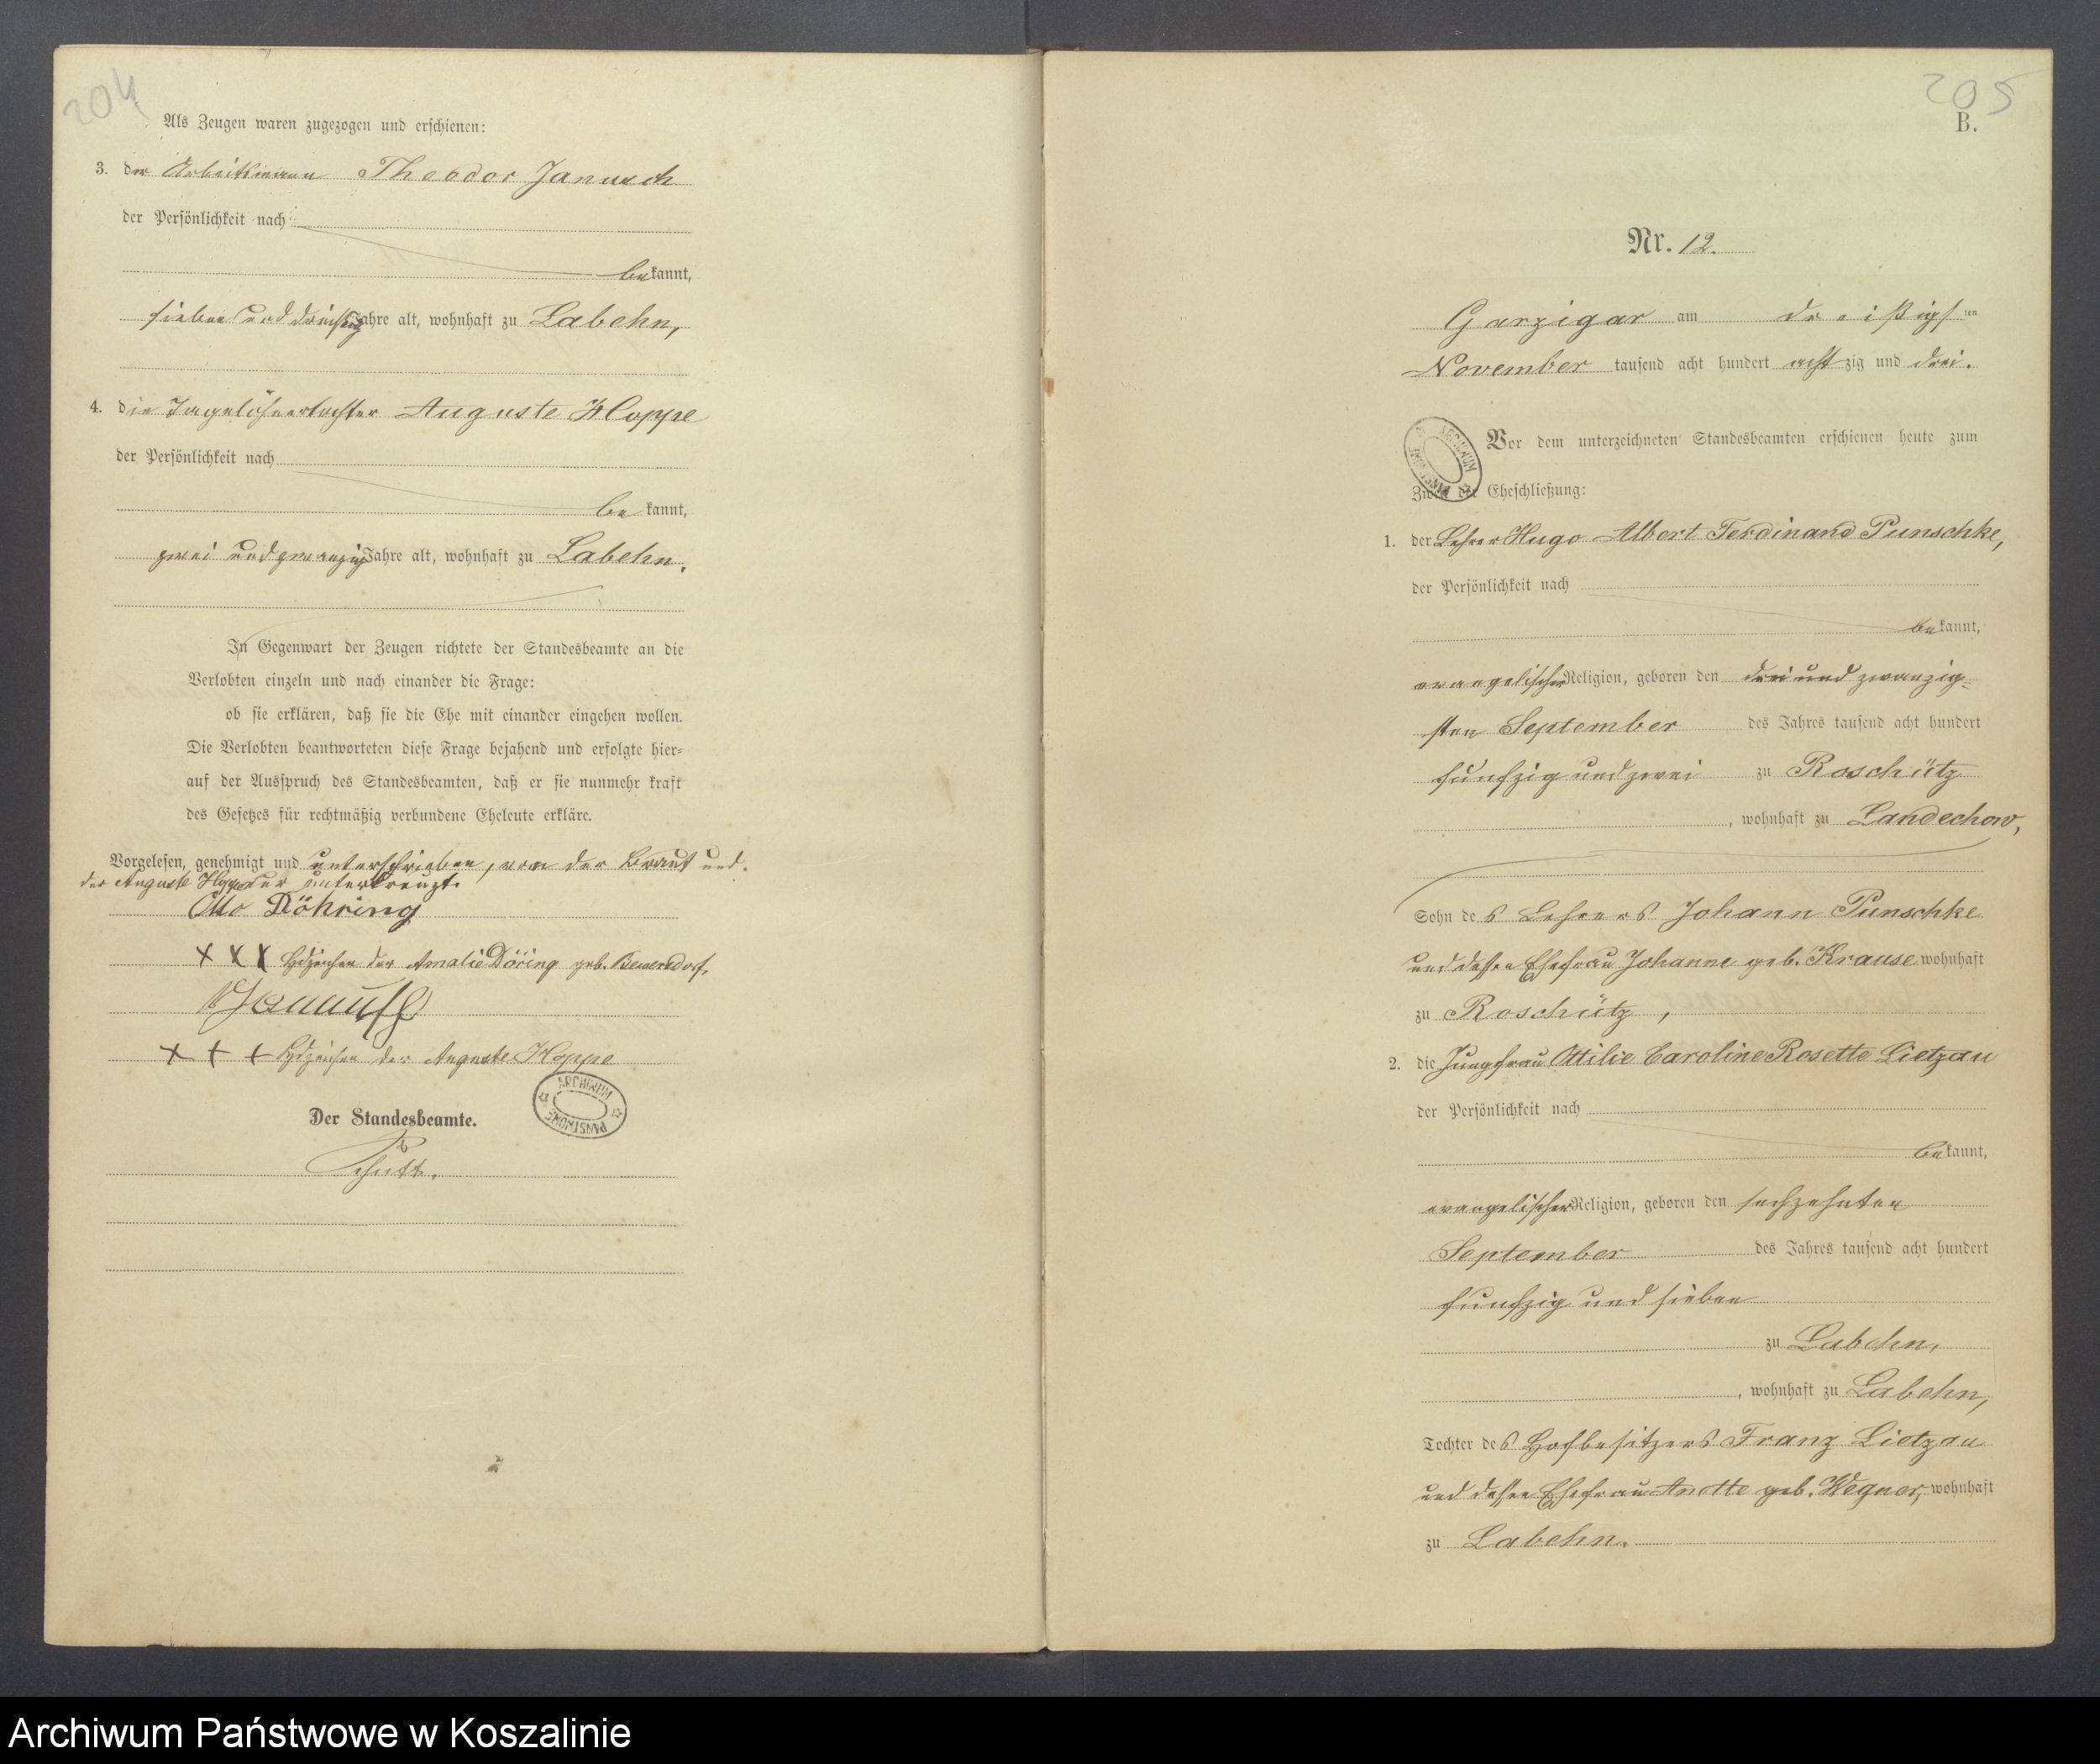 204
Als Zeugen waren zugezogen und erschienen:
3. der Arbeitsmann Theodor Janusch
der Persönlichkeit nach
bekannt,
sieben und dreißig Jahre alt, wohnhaft zu Labehn,
4. die Tagelöhnertochter Auguste Hoppe
der Persönlichkeit nach
be kannt,
zwei und zwanzig Jahre alt, wohnhaft zu Labehn.
In Gegenwart der Zeugen richtete der Standesbeamte an die
Verlobten einzeln und nach einander die Frage:
ob sie erklären, daß sie die Ehe mit einander eingehen wollen.
Die Verlobten beantworteten diese Frage bejahend und erfolgte hier=
auf der Ausspruch des Standesbeamten, daß er sie nunmehr kraft
des Gesetzes für rechtmäßig verbundene Eheleute erkläre.
Vorgelesen, genehmigt und unterschrieben, von der Braut und
der Auguste Hoppe unterkreuzt.
Otto Döhring
XXX Hdzeichen der Amalie Döring geb. Bewersdorf,
Janusch
+ + + Hdzeichen der Auguste Hoppe
ARCHIWUM PAŃSTWOWE
Der Standesbeamte.
205
B.
Nr. 12.
Garzigar am dreißigsten
November tausend acht hundert achtzig und drei.
ARCHIWUM PAŃSTWOWE
Vor dem unterzeichneten Standesbeamten erschienen heute zum
Zweck der Eheschließung:
1. der Lehrer Hugo Albert Ferdinand Punschke,
der Persönlichkeit nach
bekannt,
evangelischer Religion, geboren den drei und zwanzig=
sten September des Jahres tausend acht hundert
funfzig und zwei zu Roschütz
, wohnhaft zu Landechow,
Sohn des Lehrers Johann Punschke
und dessen Ehefrau Johanne geb. Krause wohnhaft
zu Roschütz,
2. die Jungfrau Ottilie Caroline Rosette Lietzau
der Persönlichkeit nach
bekannt,
evangelischer Religion, geboren den sechzehnten
September des Jahres tausend acht hundert
funfzig und sieben
zu Labehn,
, wohnhaft zu Labehn,
Tochter des Hofbesitzers Franz Lietzau
und dessen Ehefrau Anette geb. Wegner, wohnhaft
zu Labehn.
Archiwum Państwowe w Koszalinie